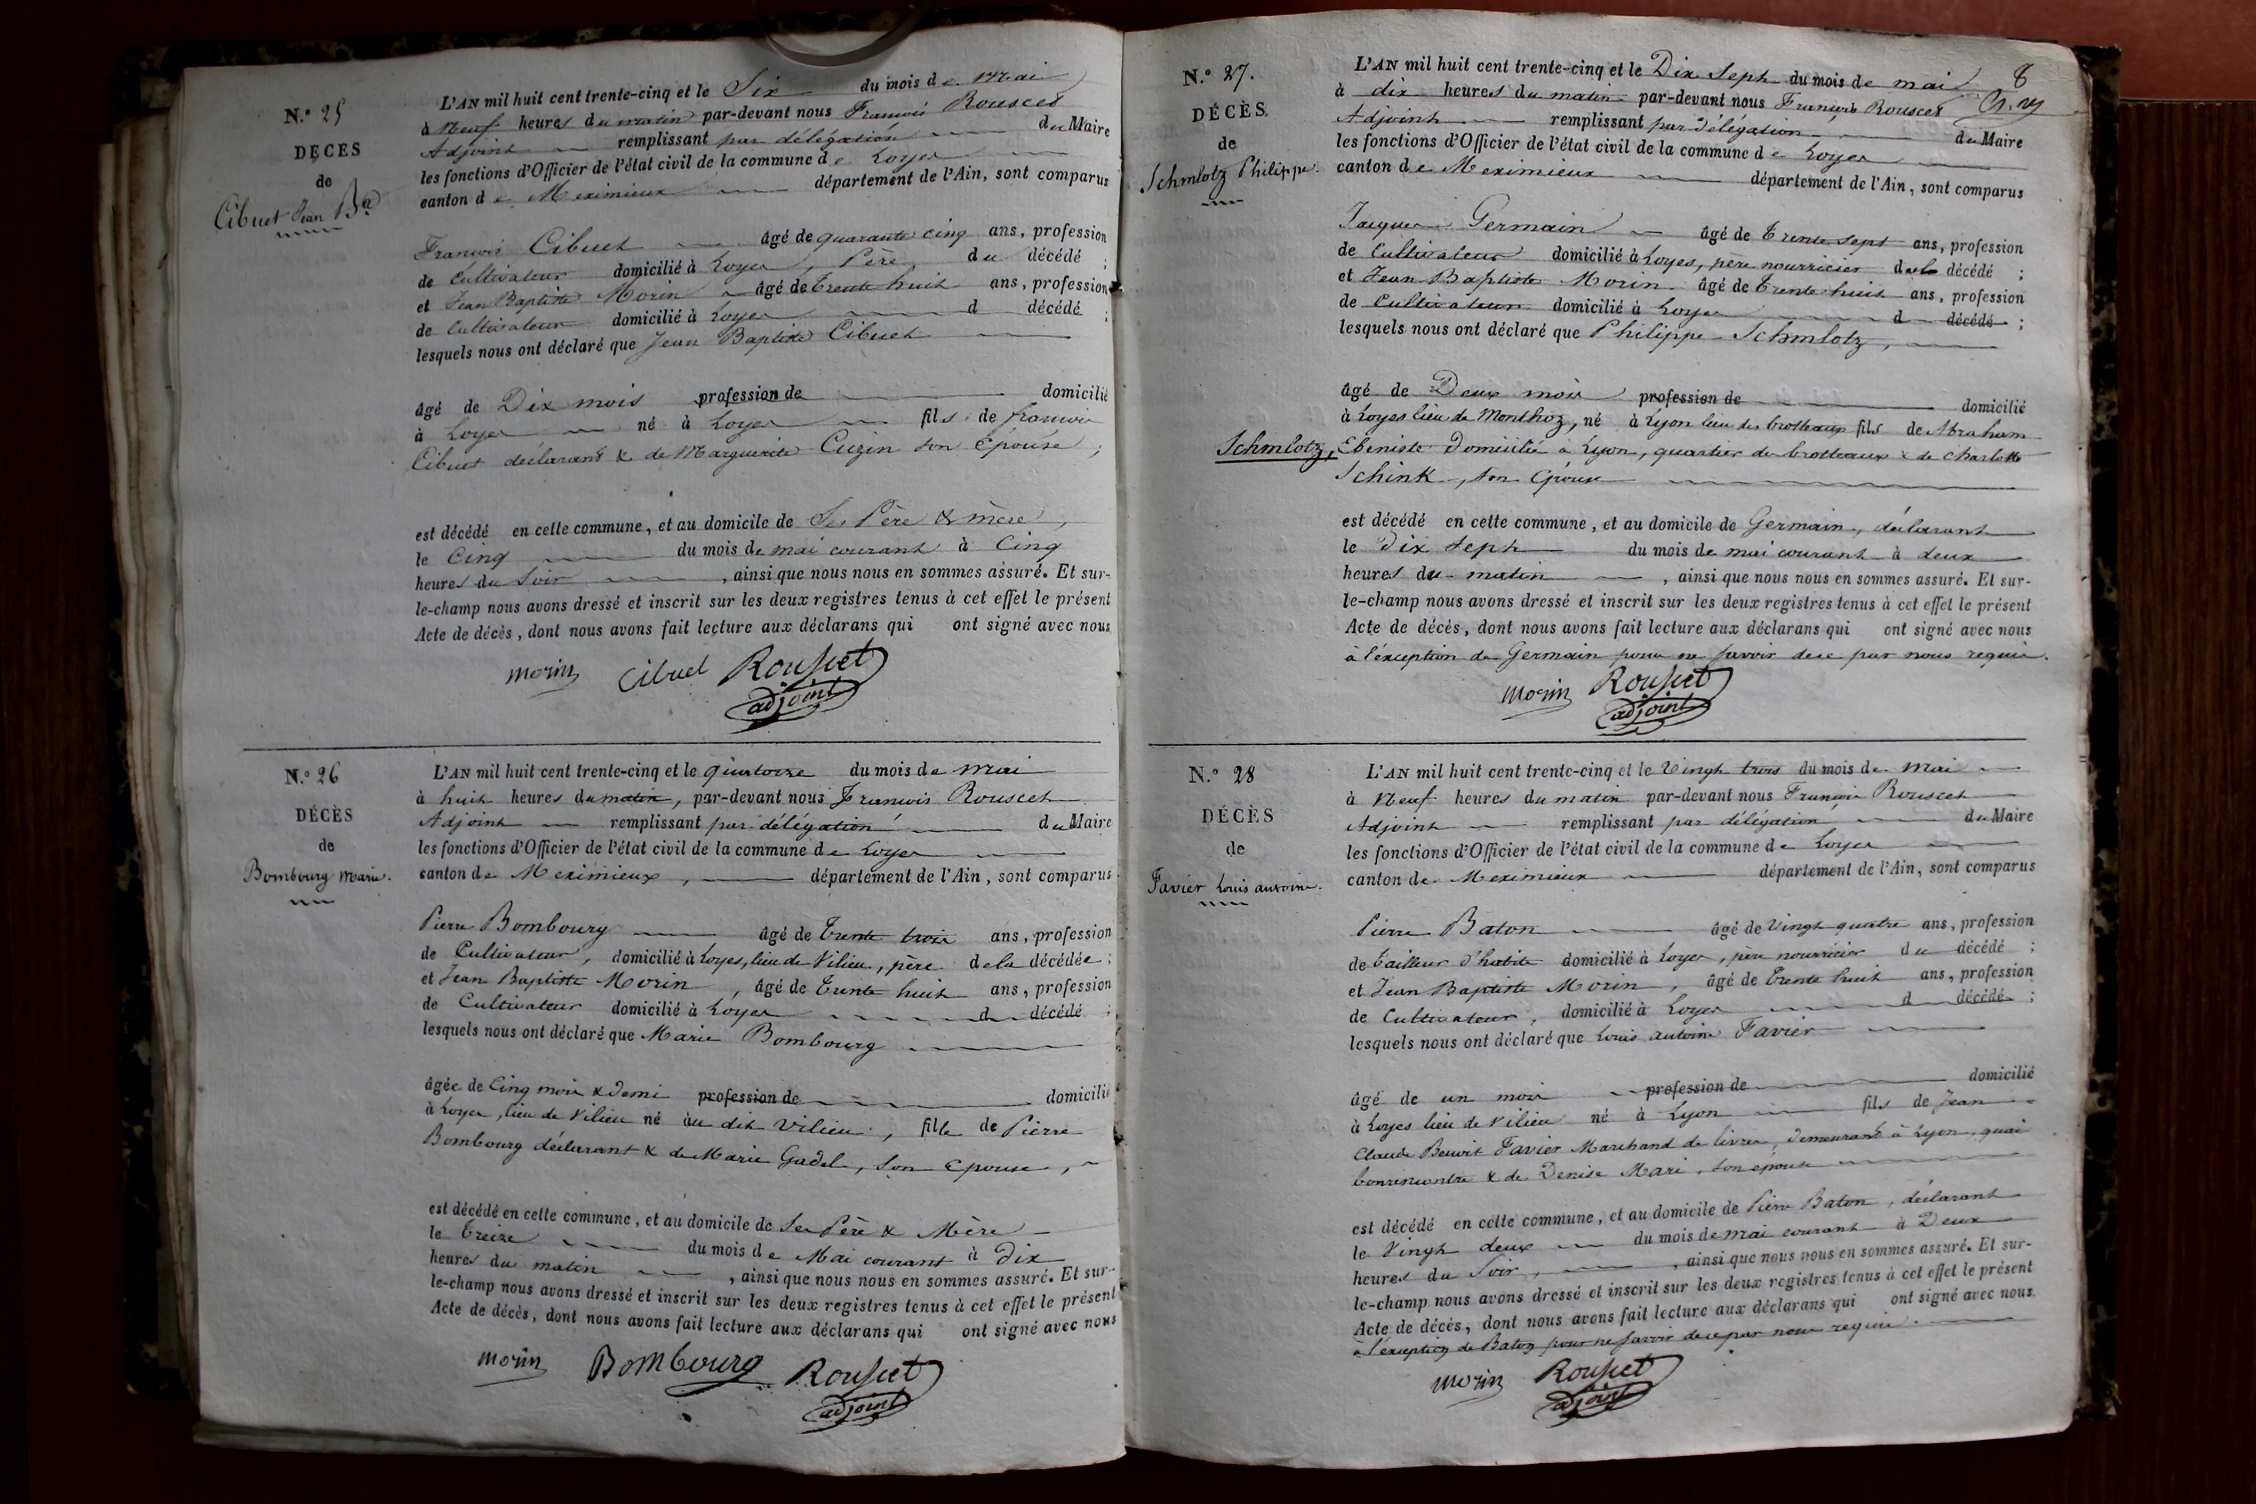 N.° 25
DÉCÈS
de
Cibuet Jean B.te
L'AN mil huit cent trente-cinq et le Six du mois de Mai
à Neuf heures du matin par-devant nous François Rouscet
Adjoint remplissant par délégation du Maire
les fonctions d'Officier de l'état civil de la commune de Loyes
canton de Meximieux département de l'Ain, sont comparus
François Cibuet âgé de quarante cinq ans, profession
de Cultivateur domicilié à Loyes, Père du décédé ;
et Jean Baptiste Morin âgé de trente huit ans, profession
de Cultivateur domicilié à Loyes d décédé ;
lesquels nous ont déclaré que Jean Baptiste Cibuet
âgé de Dix mois profession de domicilié
à Loyes né à Loyes fils de françois
Cibuet déclarant & de Marguerite Cuzin son Epouse ;
est décédé en cette commune, et au domicile de Ses Père & mère,
le Cinq du mois de mai courant à Cinq
heures du Soir, ainsi que nous nous en sommes assuré. Et sur-
le-champ nous avons dressé et inscrit sur les deux registres tenus à cet effet le présent
Acte de décès, dont nous avons fait lecture aux déclarans qui ont signé avec nous
morin Cibuet Rouscet
adjoint
N.° 26
DÉCÈS
de
Bombourg Marie.
L'AN mil huit cent trente-cinq et le quatorze du mois de mai
à huit heures du matin, par-devant nous François Rouscet
Adjoint remplissant par délégation du Maire
les fonctions d'Officier de l'état civil de la commune de Loyes
canton de Meximieux, département de l'Ain, sont comparus
Pierre Bombourg âgé de trente trois ans, profession
de Cultivateur, domicilié à Loyes, lieu de Vilieu, père de la décédée ;
et Jean Baptiste Morin, âgé de trente huit ans, profession
de Cultivateur domicilié à Loyes d décédé ;
lesquels nous ont déclaré que Marie Bombourg
âgée de Cinq mois & demi profession de domicilié
à Loyes, lieu de Vilieu né au dit Vilieu, fille de Pierre
Bombourg déclarant & de Marie Gadel, son Epouse,
est décédé en cette commune, et au domicile de Ses Père & Mère
le treize du mois de Mai courant à dix
heures du matin, ainsi que nous nous en sommes assuré. Et sur-
le-champ nous avons dressé et inscrit sur les deux registres tenus à cet effet le présent
Acte de décès, dont nous avons fait lecture aux déclarans qui ont signé avec nous
morin Bombourg Rouscet
adjoint
8
N.° 27.
DÉCÈS
de
Schmlotz Philippe.
L'AN mil huit cent trente-cinq et le Dix Sept du mois de mai
à dix heures du matin par-devant nous François Rouscet
Adjoint remplissant par délégation du Maire
les fonctions d'Officier de l'état civil de la commune de Loyes
canton de Meximieux département de l'Ain, sont comparus
Jacques Germain âgé de trente sept ans, profession
de Cultivateur domicilié à Loyes, père nourricier du décédé ;
et Jean Baptiste Morin âgé de trente huit ans, profession
de Cultivateur domicilié à Loyes d décédé ;
lesquels nous ont déclaré que Philippe Schmlotz,
âgé de Deux mois profession de domicilié
à Loyes lieu de Monthoz, né à Lyon lieu des brotteaux fils de Abraham
Schmlotz, Ebeniste domicilié à Lyon, quartier des brotteaux & de Charlotte
Schink, son Epouse
est décédé en cette commune, et au domicile de Germain, déclarant
le dix sept du mois de mai courant à deux
heures du matin, ainsi que nous nous en sommes assuré. Et sur-
le-champ nous avons dressé et inscrit sur les deux registres tenus à cet effet le présent
Acte de décès, dont nous avons fait lecture aux déclarans qui ont signé avec nous
à l'exception de Germain pour ne savoir de ce par nous requis.
morin Rouscet
adjoint
N.° 28
DÉCÈS
de
Favier Louis antoine.
L'AN mil huit cent trente-cinq et le Vingt trois du mois de Mai
à Neuf heures du matin par-devant nous François Rouscet
Adjoint remplissant par délégation du Maire
les fonctions d'Officier de l'état civil de la commune de Loyes
canton de Meximieux département de l'Ain, sont comparus
Pierre Baton âgé de Vingt quatre ans, profession
de tailleur d'habits domicilié à Loyes, père nourricier du décédé ;
et Jean Baptiste Morin, âgé de trente huit ans, profession
de Cultivateur, domicilié à Loyes d décédé ;
lesquels nous ont déclaré que Louis antoine Favier
âgé de un mois profession de domicilié
à Loyes lieu de Vilieu né à Lyon fils de Jean
Claude Benoit Favier Marchand de livres, demeurant à Lyon, quai
bonrencontre & de Denise Mari, son épouse
est décédé en cette commune, et au domicile de Pierre Baton, déclarant
le Vingt deux du mois de mai courant à Deux
heures du Soir, ainsi que nous nous en sommes assuré. Et sur-
le-champ nous avons dressé et inscrit sur les deux registres tenus à cet effet le présent
Acte de décès, dont nous avons fait lecture aux déclarans qui ont signé avec nous
à l'exception de Baton pour ne savoir de ce par nous requis.
morin Rouscet
adjoint